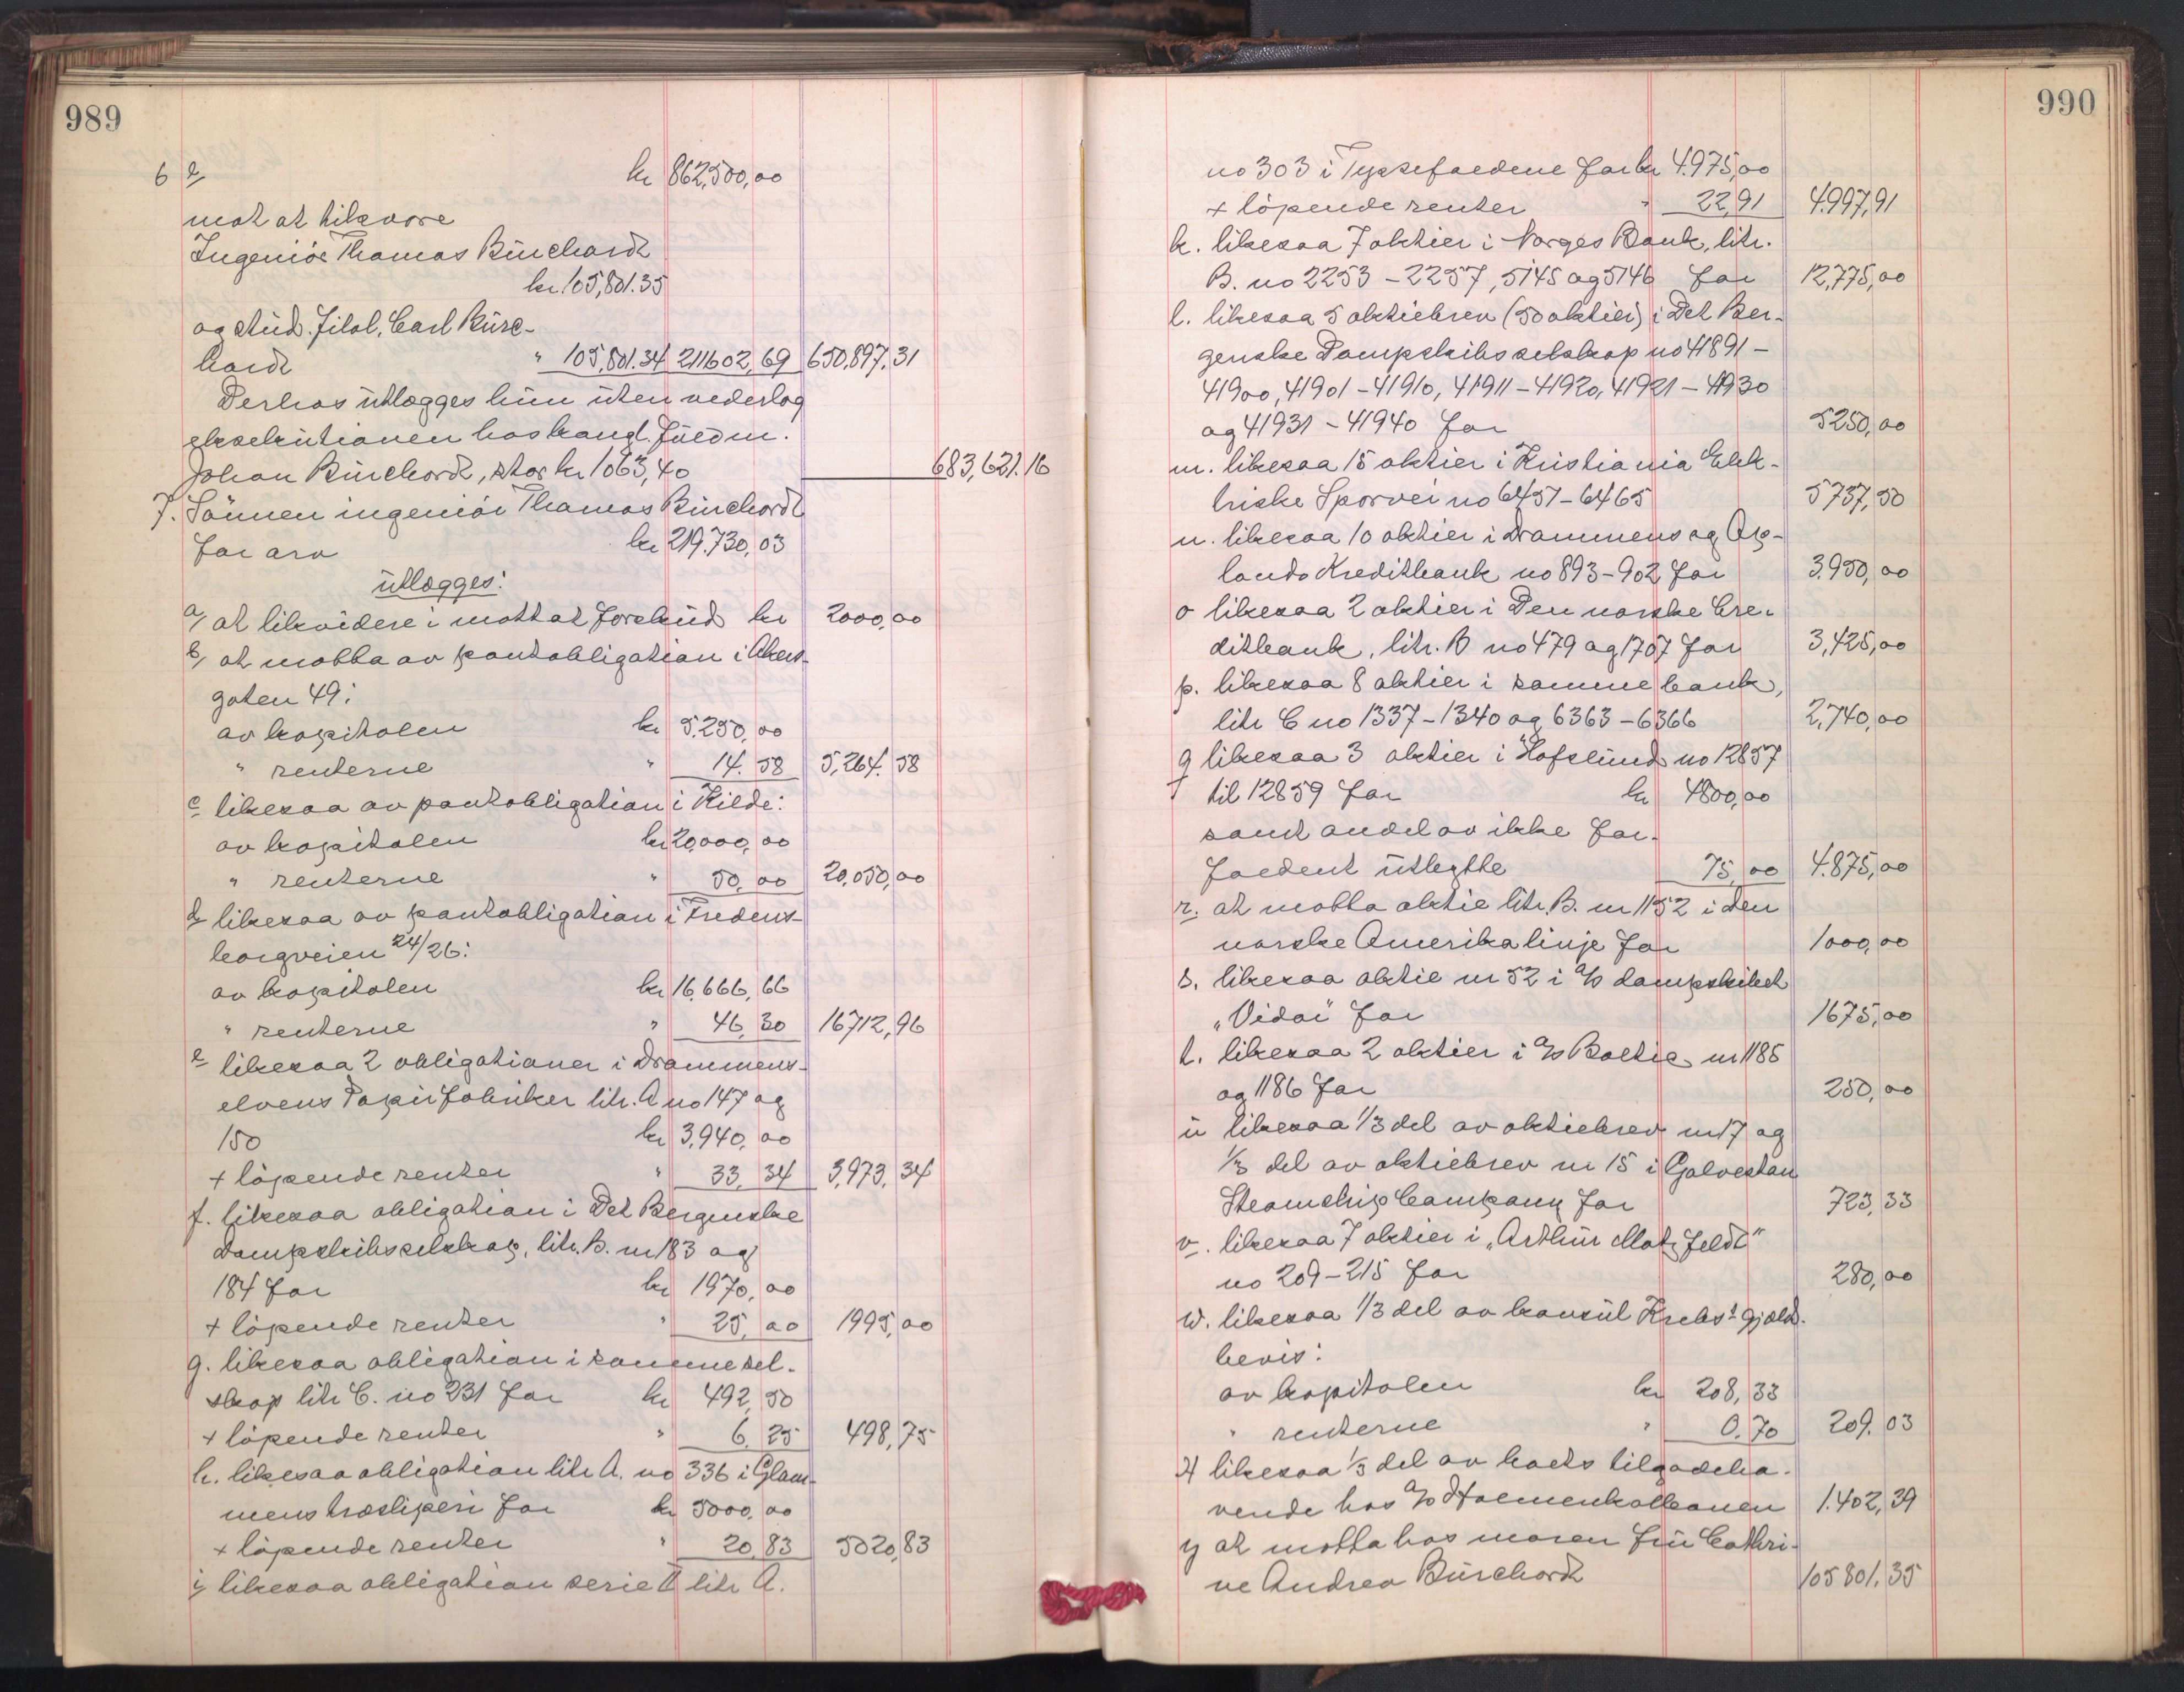 989
6 e, kr 862,500,00
mot at tilsvare
Ingeniör Thomas Burchardt
kr. 105,801.35
og stud. filol. Carl Burc-
hardt " 105,801.34 211602,69 650,897,31
Derhos utlægges hun uten vederlag
eksekutionen hos kand. jur.
Johan Burchardt, stor kr 1063,40 683,621.16
7. Sönnen ingeniör Thomas Burchardt
for arv kr 219.730,03
utlægges:
a, at likvidere i mottat forskud kr 2000,00
b, at motta av pantobligation i Akers-
gaten 49:
av kapitalen kr 5.250,00
" renterne " 14.58 5,264.58
c likesaa av pantobligation i Kilde:
av kapitalen kr 20,000,00
" renterne " 50,00 20,050,00
d likesaa av pantobligation i Fredens-
borgveien 24/26:
av kapitalen kr 16,666,66
" renterne " 46,30 16712,96
e likesaa 2 obligationer i Drammens-
elvens Papirfabriker litr. A no 147 og
150 kr 3,940,00
+ löpende renter " 33,34 3,973,34
f. likesaa obligation i Det Bergenske
Dampskibsselskap, litr. B. nr 183 og
184 for kr 1970,00
+ löpende renter " 25,00 1995,00
g. likesaa obligation i samme sel-
skap litr C. no 231 for kr 492,50
+ löpende renter " 6,25 498,75
h. likesaa obligation litr A. no 336 i Glom-
mens træsliperi for kr 5000,00
+ löpende renter " 20,83 5020,83
i, likesaa obligation serie litr A.
990
no 303 i Tyssefaldene for kr 4.975,00
+ löpende renter " 22,91 4.997,91
k. likesaa 7 aktier i Norges Bank, litr.
B. no 2253 - 2257, 5145 og 5146 for 12,775,00
l. likesaa 5 aktiebrev (50 aktier) i Det Ber-
genske Dampskibsselskap no 41891 -
41900, 41901 - 41910, 41911 - 41920, 41921 - 41930
og 41931 - 41940 for 5250,00
m. likesaa 15 aktier i Kristiania Elek-
triske Sporvei no 6451 - 6465 5737,50
n. likesaa 10 aktier i Drammens og Op-
lands Kreditbank no 893 - 902 for 3.950,00
o likesaa 2 aktier i Den norske Cre-
ditbank, litr. B no 479 og 1707 for 3,425,00
p. likesaa 8 aktier i samme bank,
litr C no 1337 - 1340 og 6363 - 6366 2,740,00
q likesaa 3 aktier i "Hafslund no 12857
til 12859 for kr 4800,00
samt andel av ikke for-
faldent utbytte 75,00 4.875,00
r. at motta aktie litr. B. nr 1152 i den
norske Amerikalinje for 1000,00
s. likesaa aktie nr 52 i a/s dampskibet
"Vidar" for 1675,00
t. likesaa 2 aktier i a/s Baltic nr 1185
og 1186 for 250,00
u likesaa 1/3 del av aktiebrev nr 17 og
1/3 del av aktiebrev nr 15 i Galvestan
Steamship Company for 723,33
v. likesaa 7 aktier i "Arthur Motzfeldt"
no 209 - 215 for 280,00
w. likesaa 1/3 del av konsul Krebs's gjælds-
bevis:
av kapitalen kr 208,33
" renterne " 0,70 209.03
x likesaa 1/3 del av boets tilgodeha-
vende hos a/s Holmenkolbanen 1.402,39
y at motta hos moren fru Cathri-
ne Andrea Burchardt 105801,35